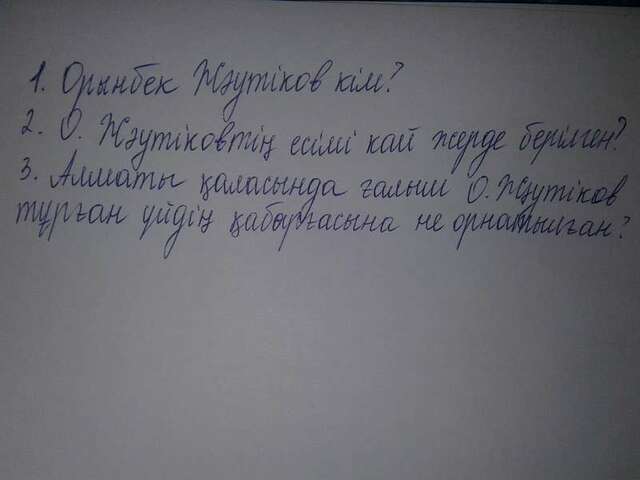 1. Орынбек Жәутіков кім?
2. О. Жәутіковтің есімі қай жерде берілген?
3. Алматы қаласында ғалым О. Жәутіков
тұрған үйдің қабырғасына не орнатылған?